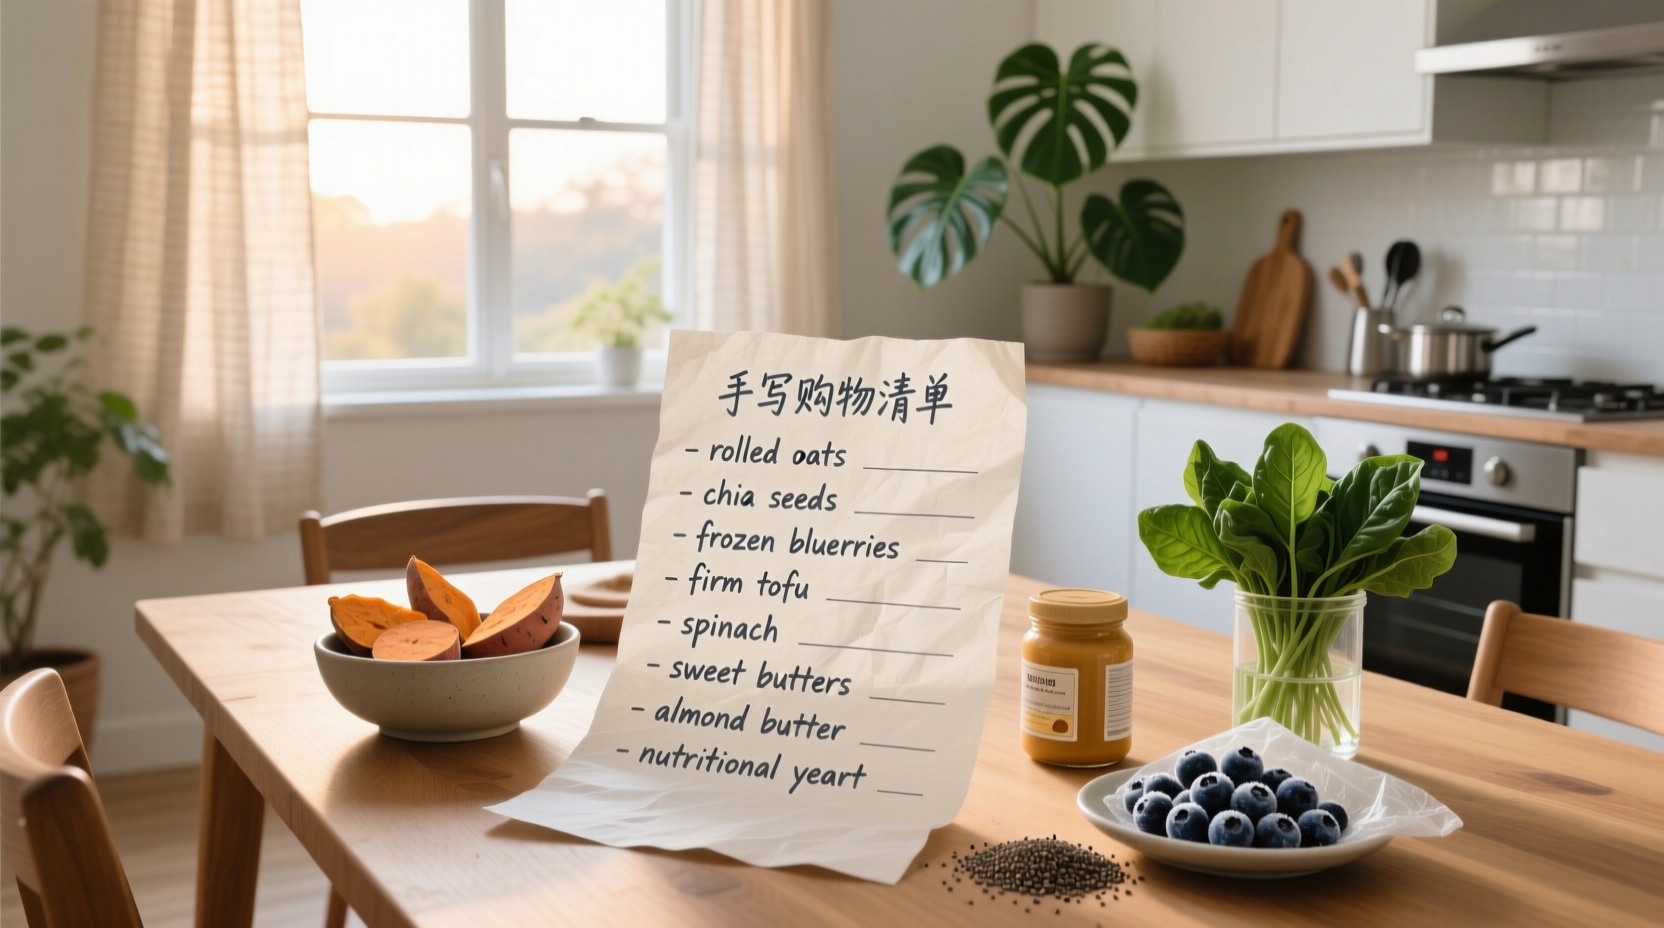 手写购物清单
- rolled oats
- chia seeds
- frozen bluerries
- firm tofu
- spinach
- sweet butters
- almond butter
- nutritional yeart